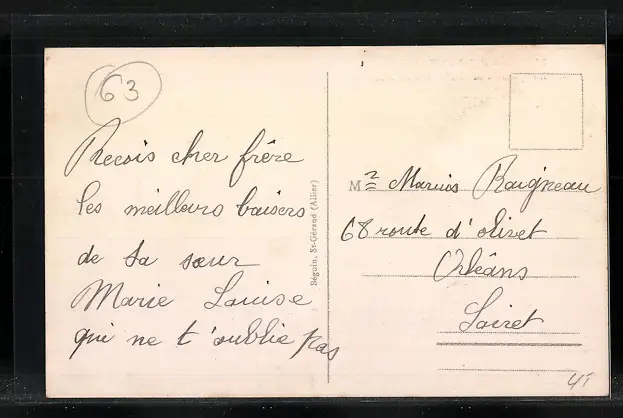 63
Recois cher frère
les meilleurs baisers
de ta sœur
Marie Louise
qui ne t'oublie pas
Béguin, St-Gérand (Allier)
Mr Marius Raigneau
68 route d'olivet
Orléans
Loiret
45